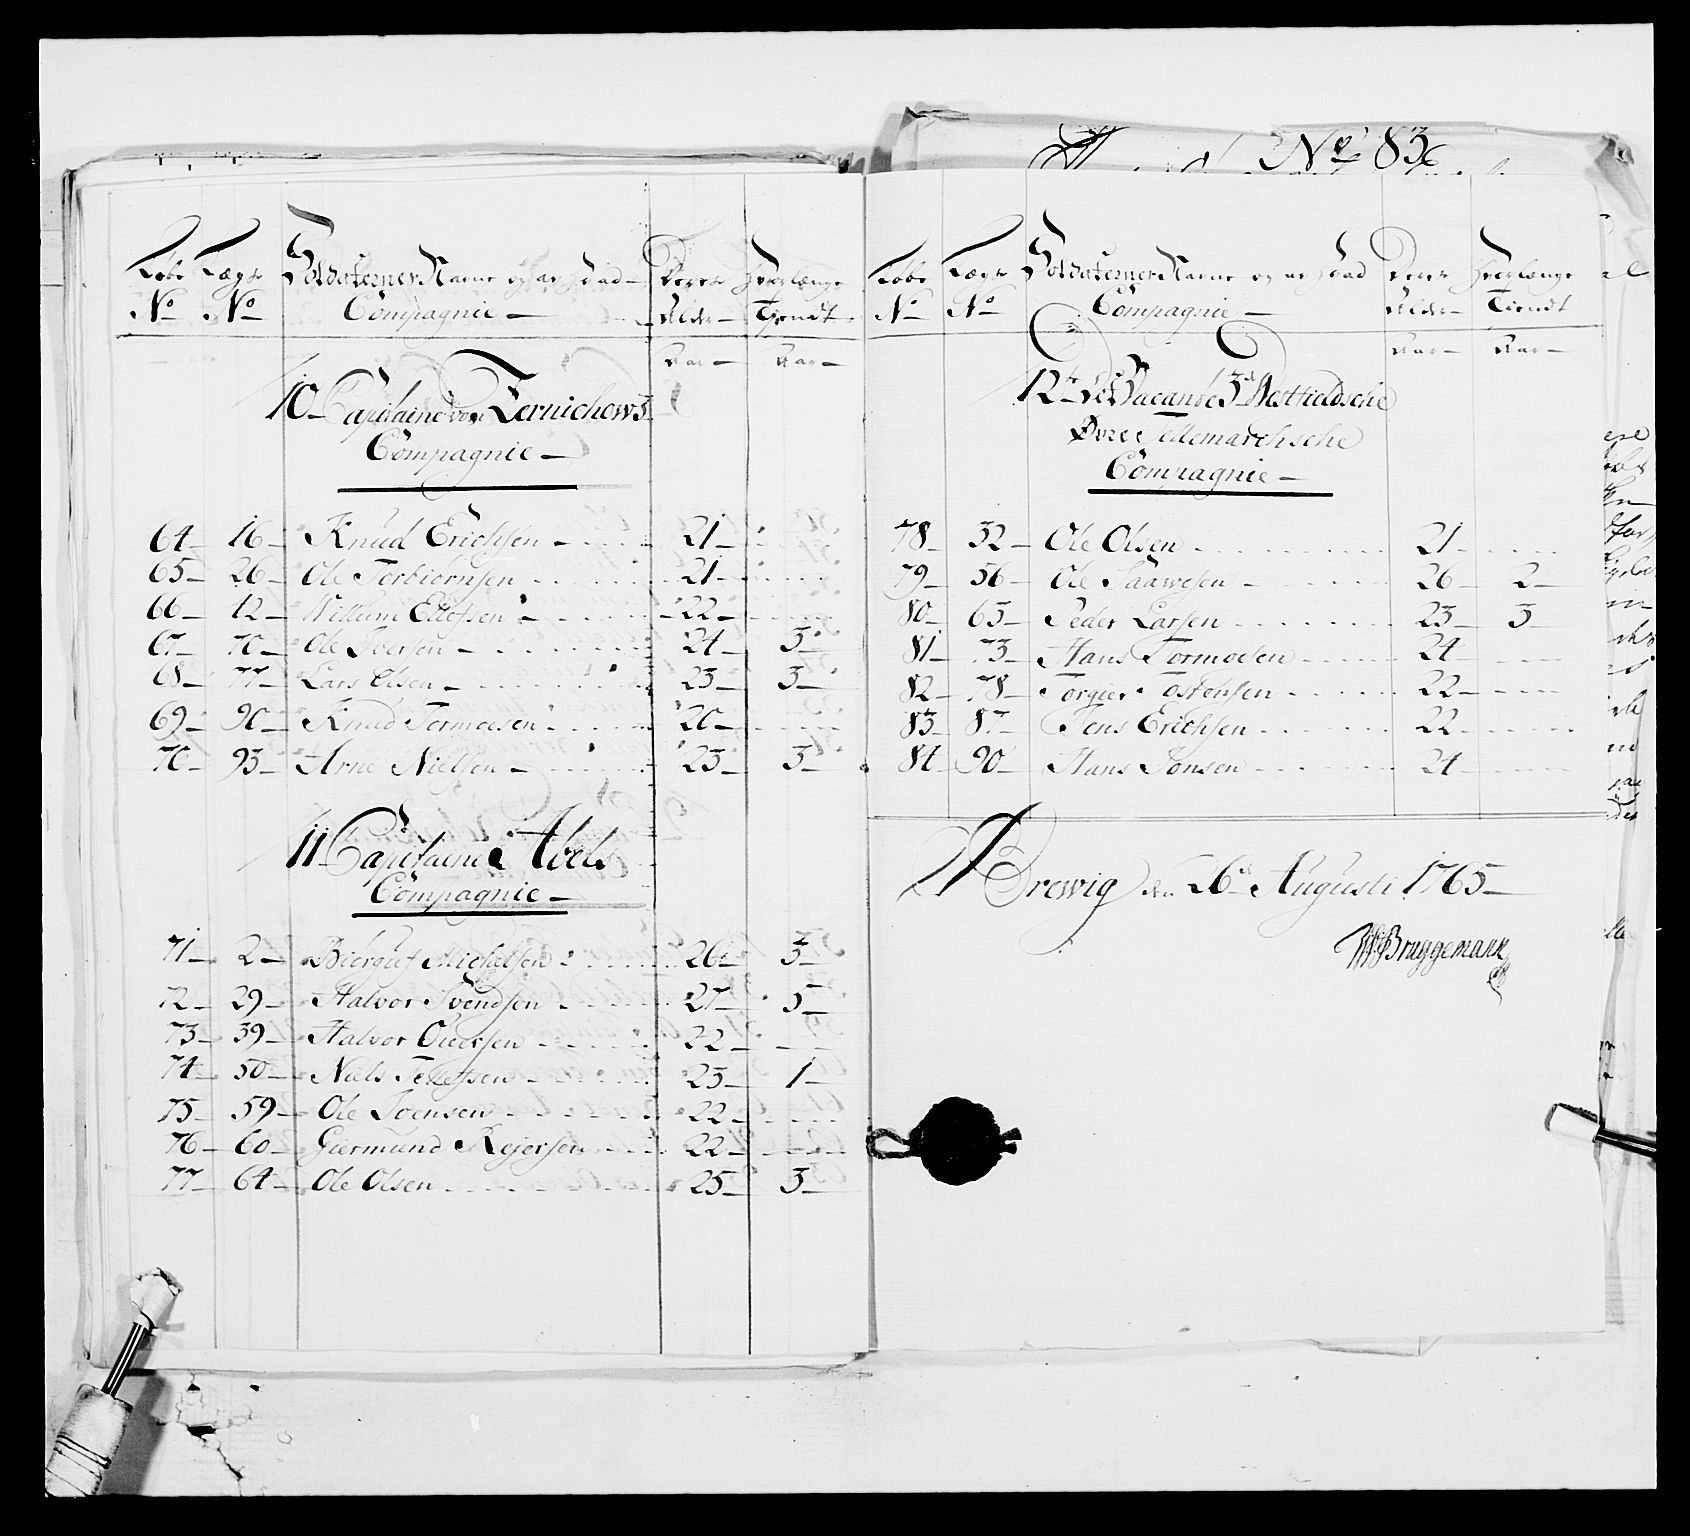 Løbe Lægs Soldaternes Navne og af hvad Deres Hvor længe
No No Compagnie Alder Tjendt
Aar Aar
10 Capitaine von Ternichows
Compagnie
64 16 Knud Erichsen 21
65 26 Ole Torbiørnsen 21
66 12 Willum Ellefsen 22
67 70 Ole Iversen 24 3
68 77 Lars Olsen 23 3
69 90 Knud Tormoesen 20
70 93 Arne Nielsen 23 3
11 Capitaine Abels
Compagnie
71 2 Biørguf Michelsen 26 3
72 29 Halvor Svendsen 27 5
73 39 Halvor Oversen 22
74 50 Niels Tellefsen 23 1
75 59 Ole Joensen 22
76 60 Giermund Rejersen 22
77 64 Ole Olsen 25 3
No 83
Løbe Lægs Soldaternes Navne og af hvad Deres Hvor længe
No No Compagnie Alder Tiendt
Aar Aar
12te Det Vacande 3d Westfieldsche
Øvre Tellemarchsche
Compagnie
78 32 Ole Olsen 21
79 56 Ole Saawesen 26 2
80 63 Peder Larsen 23 3
81 73 Hans Tormoesen 24
82 78 Torgier Tostensen 22
83 87 Jens Erichsen 22
84 90 Hans Jonsen 24
Brewig den 26de Augusti 1765
Bruggemann